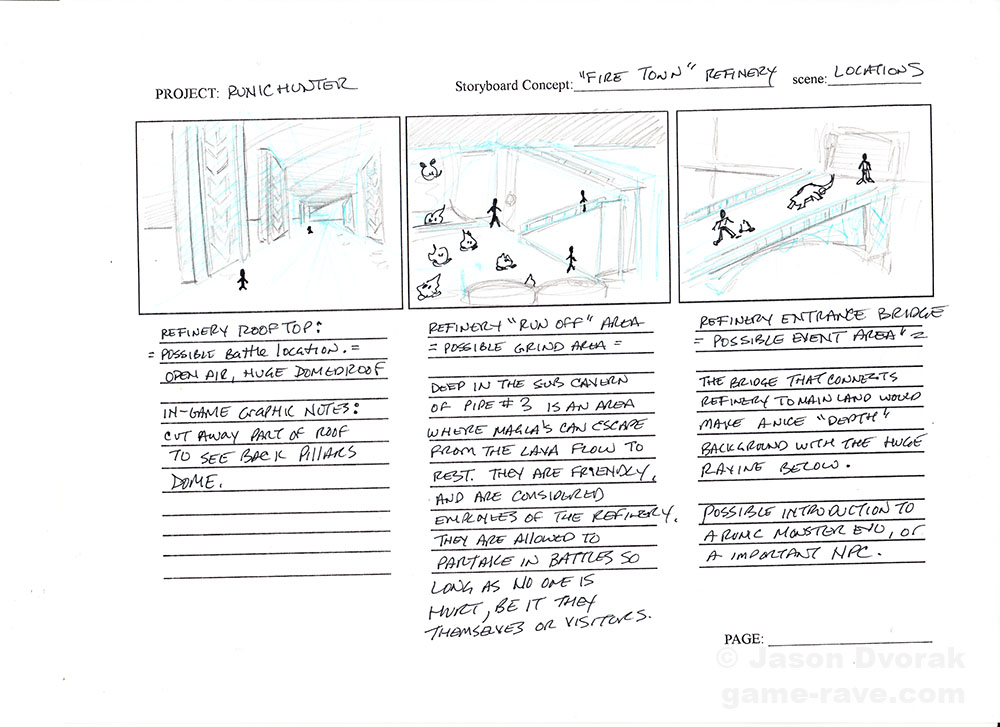 PROJECT: RUNIC HUNTER
Storyboard Concept: "FIRE TOWN" REFINERY
scene: LOCATIONS
REFINERY ROOF TOP:
= POSSIBLE Battle location. =
OPEN AIR, HUGE DOMED ROOF
IN-GAME GRAPHIC NOTES:
CUT AWAY PART OF ROOF
TO SEE BACK PILLARS
DOME.
REFINERY "RUN OFF" AREA
= POSSIBLE GRIND AREA =
DEEP IN THE SUB CAVERN
OF PIPE #3 IS AN AREA
WHERE MAGLA'S CAN ESCAPE
FROM THE LAVA FLOW TO
REST. THEY ARE FRIENDLY,
AND ARE CONSIDERED
EMPLOYEES OF THE REFINERY.
THEY ARE ALLOWED TO
PARTAKE IN BATTLES SO
LONG AS NO ONE IS
HURT, BE IT THEY
THEMSELVES OR VISITORS.
REFINERY ENTRANCE BRIDGE
= POSSIBLE EVENT AREA" =
THE BRIDGE THAT CONNECTS
REFINERY TO MAIN LAND WOULD
MAKE A NICE "DEPTH"
BACKGROUND WITH THE HUGE
RAVINE BELOW.
POSSIBLE INTRODUCTION TO
A RUNIC MONSTER EVO, OR
A IMPORTANT NPC.
PAGE:
© Jason Dvorak
game-rave.com